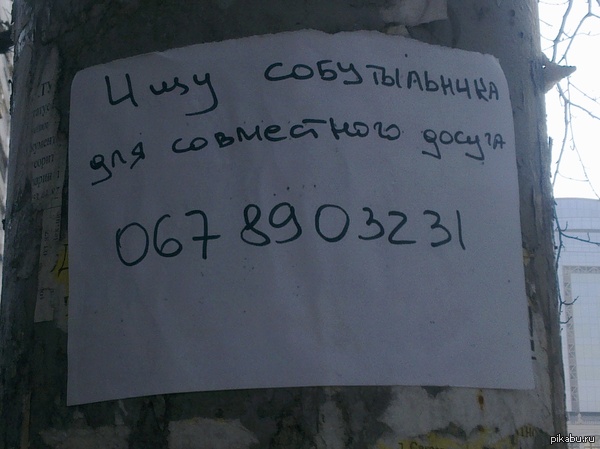 Ищу собутыльника
для совместного досуга
067 8903231
pikabu.ru